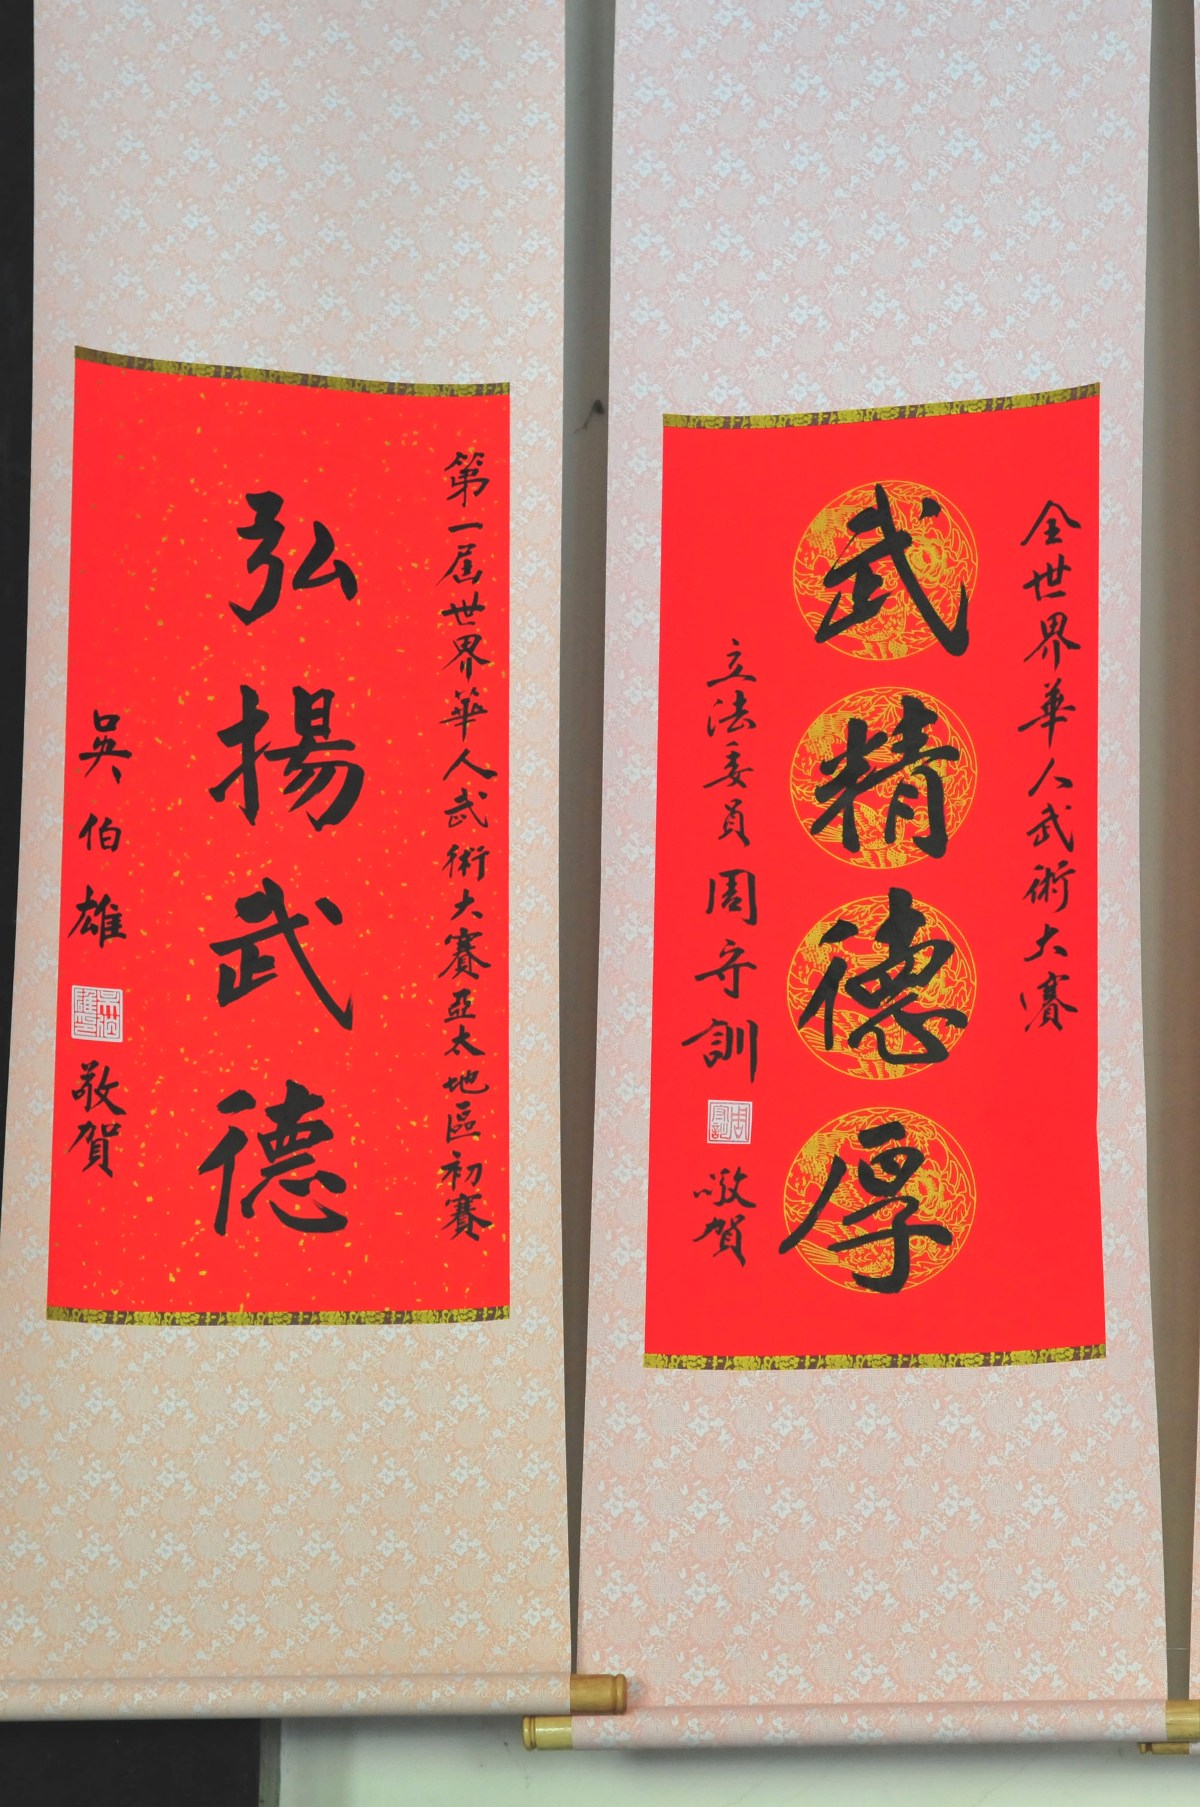 全世界華人武術大賽
武精德厚
立法委員周守訓
敬賀
第一屆世界華人武術大賽亞太地區初賽
弘揚武德
吳伯雄
敬賀